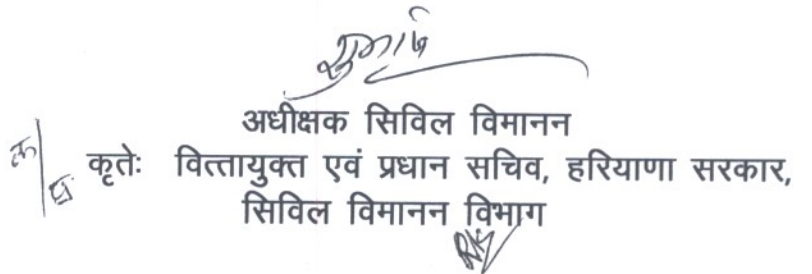 अधीक्षक सिविल विमानन
कृतेः वित्तायुक्त एवं प्रधान सचिव, हरियाणा सरकार,
सिविल विमानन विभाग